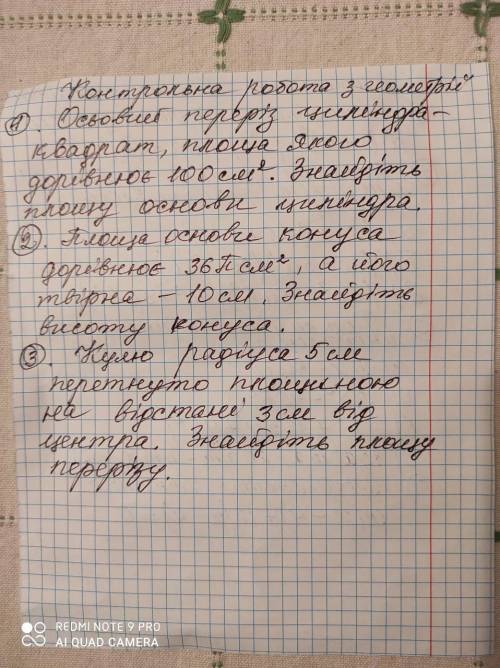 Контрольна робота з геометрії
1. Осьовий переріз циліндра -
квадрат, площа якого
дорівнює 100 см². Знайдіть
площу основи циліндра.
2. Площа основи конуса
дорівнює 36П см², а його
твірна - 10 см. Знайдіть
висоту конуса.
3. Кулю радіуса 5 см
перетнуто площиною
на відстані 3 см від
центра. Знайдіть площу
перерізу.
REDMI NOTE 9 PRO
AI QUAD CAMERA